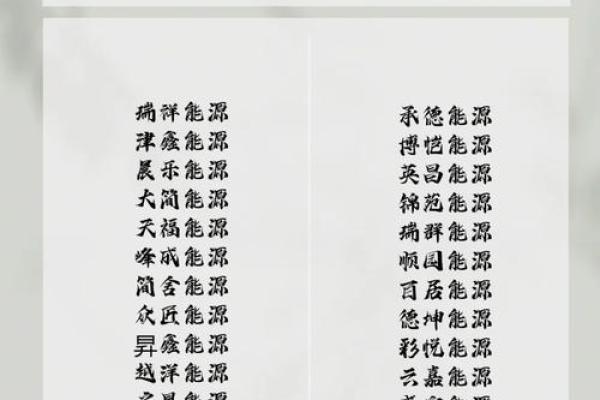 瑞祥能源
津鑫能源
晨乐能源
大简能源
天福能源
峰成能源
简舍能源
众匠能源
昇鑫能源
越洋能源
承德能源
博恺能源
英昌能源
锦范能源
瑞群能源
顺园能源
百居能源
德坤能源
彩悦能源
云嘉能源